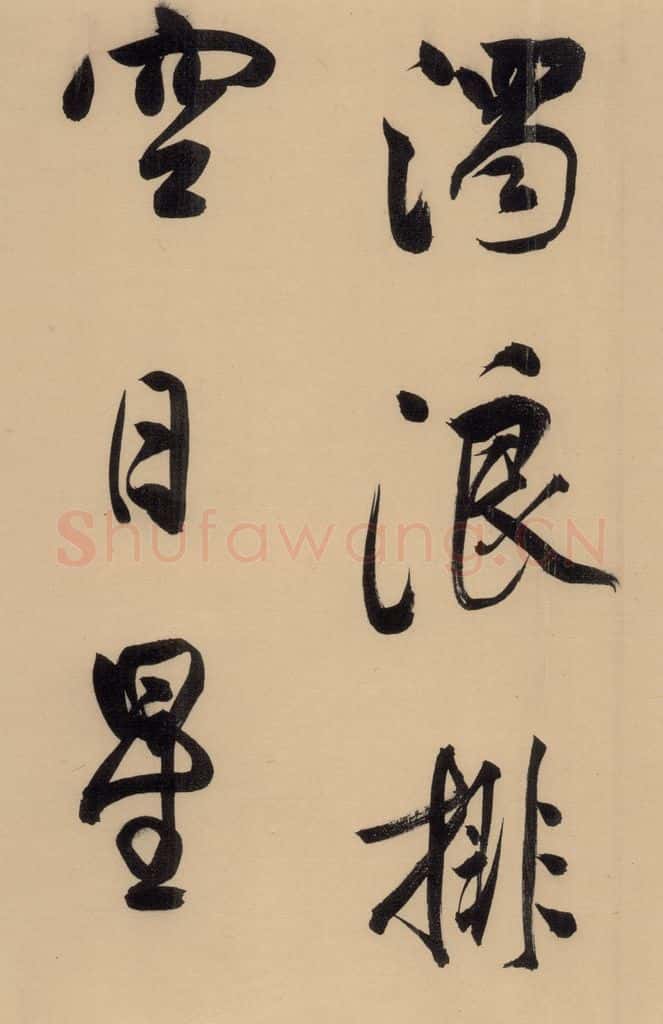 濁浪排
空日星
Shufawang.CN